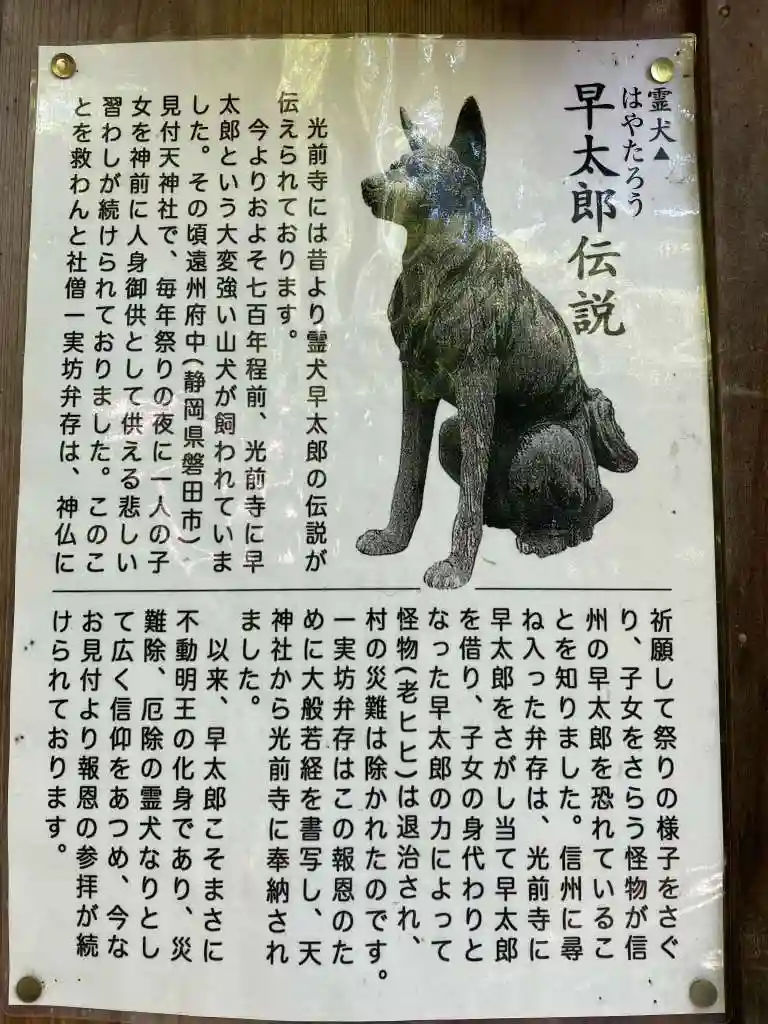 霊犬▲
はやたろう
早太郎伝説
光前寺には昔より霊犬早太郎の伝説が
伝えられております。
今よりおよそ七百年程前、光前寺に早
太郎という大変強い山犬が飼われていま
した。その頃遠州府中(静岡県磐田市)
見付天神社で、毎年祭りの夜に一人の子
女を神前に人身御供として供える悲しい
習わしが続けられておりました。このこ
とを救わんと社僧一実坊弁存は、神仏に
祈願して祭りの様子をさぐ
り、子女をさらう怪物が信
州の早太郎を恐れているこ
とを知りました。信州に尋
ね入った弁存は、光前寺に
早太郎をさがし当て早太郎
を借り、子女の身代わりと
なった早太郎の力によって
怪物(老ヒヒ)は退治され、
村の災難は除かれたのです。
一実坊弁存はこの報恩のた
めに大般若経を書写し、天
神社から光前寺に奉納され
ました。
以来、早太郎こそまさに
不動明王の化身であり、災
難除、厄除の霊犬なりとし
て広く信仰をあつめ、今な
お見付より報恩の参拝が続
けられております。